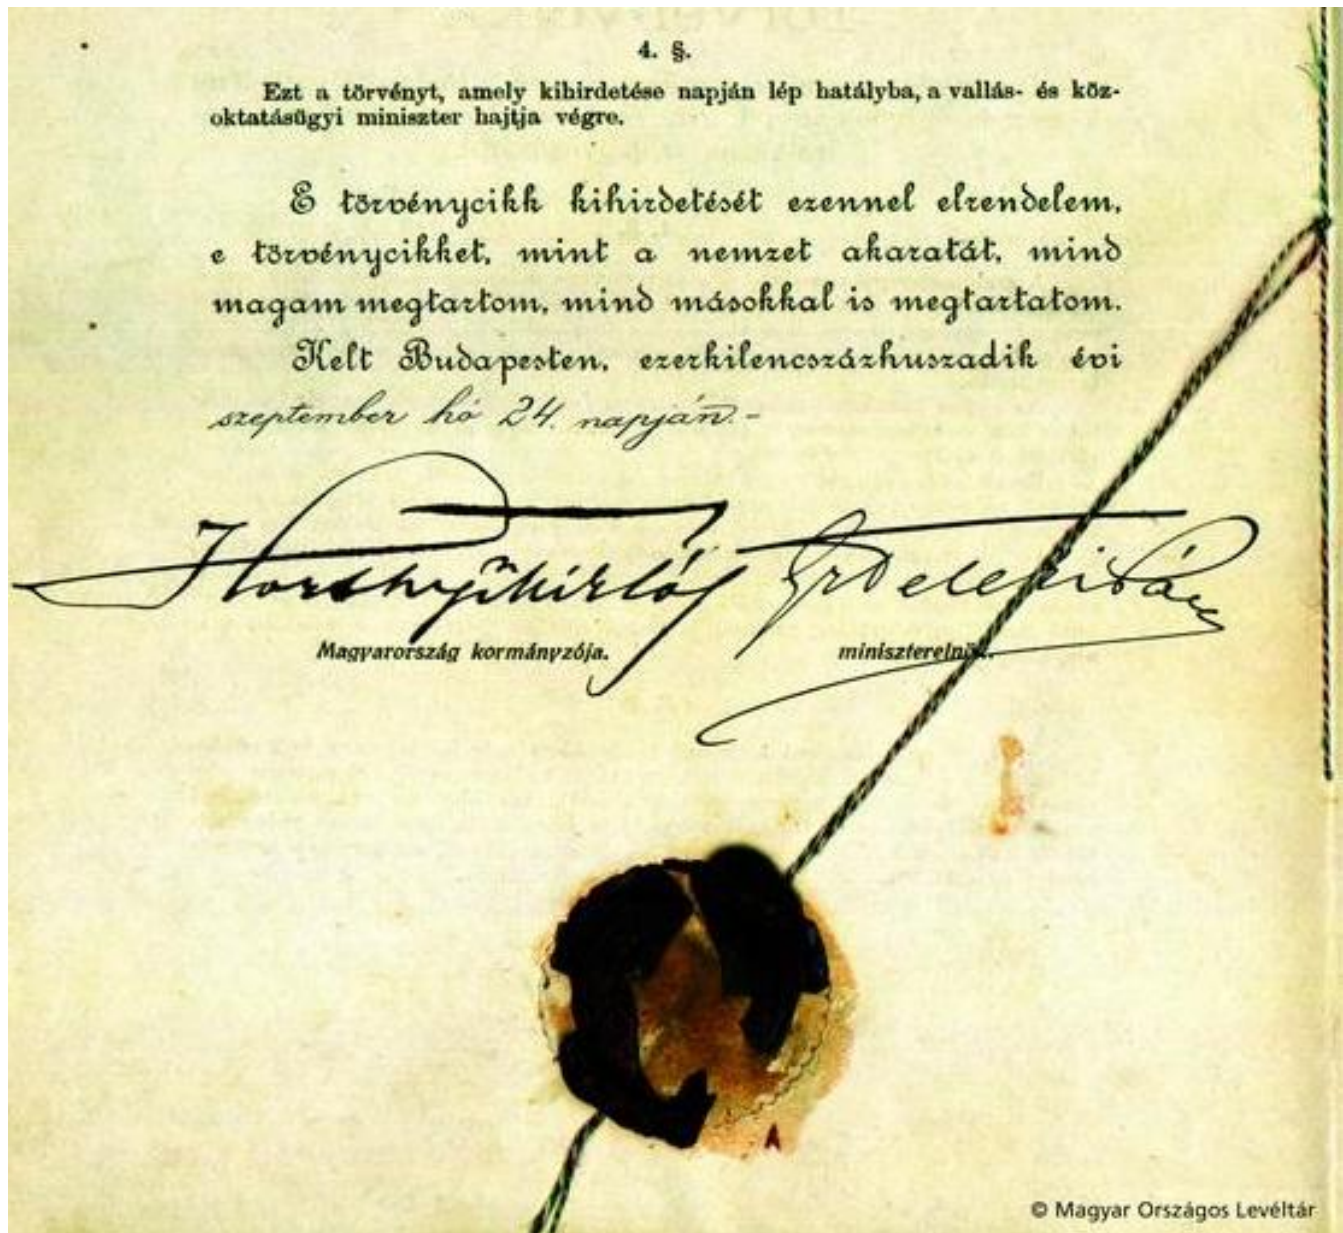 4. §.
Ezt a törvényt, amely kihirdetése napján lép hatályba, a vallás- és köz-
oktatásügyi miniszter hajtja végre.
E törvénycikk kihirdetését ezennel elrendelem,
e törvénycikket, mint a nemzet akaratát, mind
magam megtartom, mind másokkal is megtartatom.
Kelt Budapesten, ezerkilencszázhuszadik évi
szeptember hó 24. napján.-
Horthy Miklós
Magyarország kormányzója.
miniszterelnök.
© Magyar Országos Levéltár